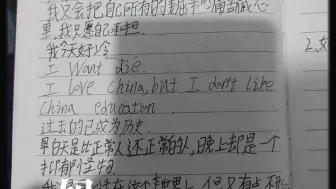 我只会把自己所有的
里,我只愿自己承担.
我今天好冷
I Want die.
I love china,but I don't like
china education.
过去的已成为历史.
早白天是比正常人还正常的人,晚上却是一个
怪物.
这个世界上